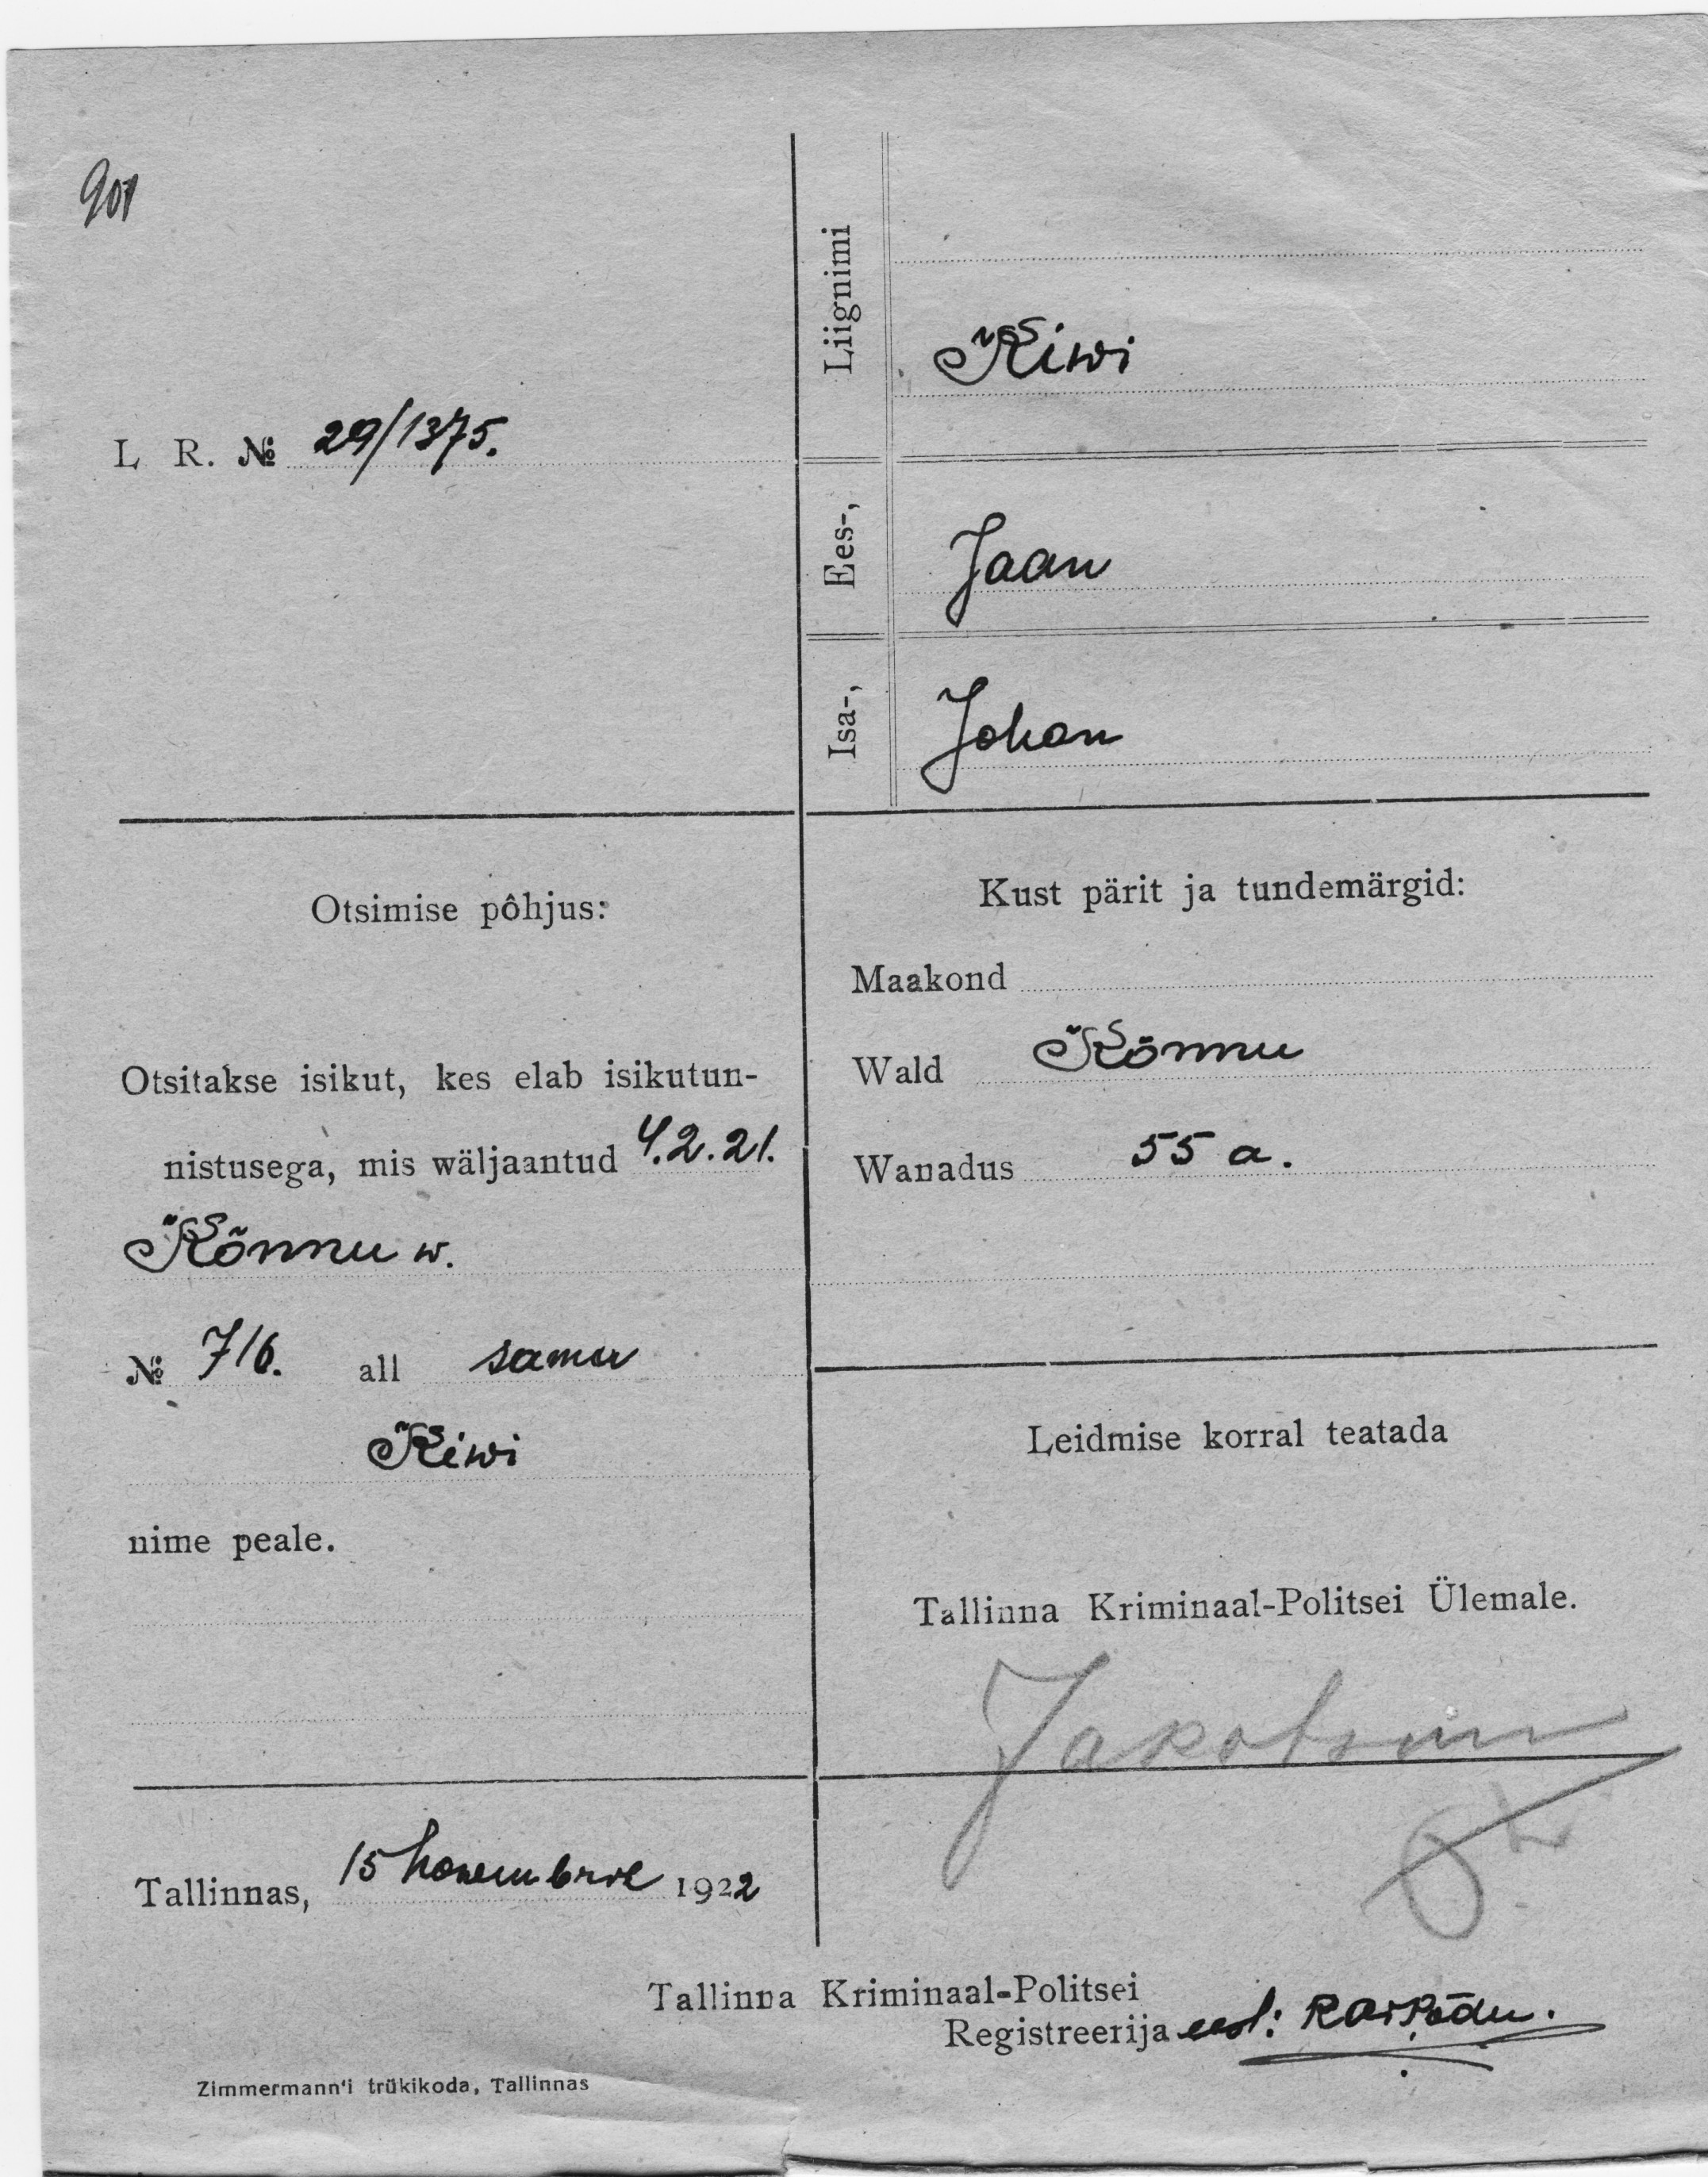 901
L R. № 29/1375.
Liignimi Kiwi
Ees-, Jaan
Isa-, Johan
Otsimise pôhjus:
Otsitakse isikut, kes elab isikutun-
nistusega, mis wäljaantud 4.2.21.
Kõnnu w.
№ 716. all sama
Kiwi
nime peale.
Kust pärit ja tundemärgid:
Maakond
Wald Kõnnu
Wanadus 55 a.
Leidmise korral teatada
Tallinna Kriminaal-Politsei Ülemale.
Jakobson
Tallinnas, 15 nowembril 1922
Tallinna Kriminaal-Politsei
Registreerija eest:
Zimmermann'i trükikoda, Tallinnas